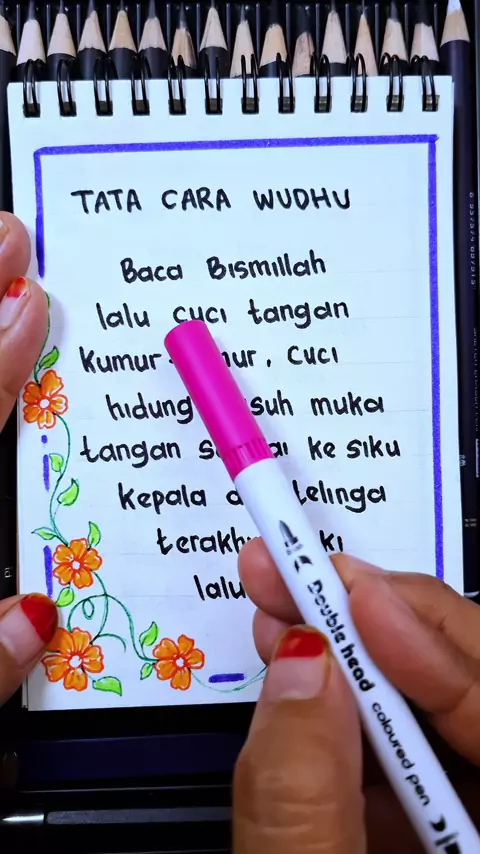 TATA CARA WUDHU
Baca Bismillah
lalu cuci tangan
kumur - , cuci
hidung muka
tangan ke siku
kepala telinga

lalu
Double head coloured pen